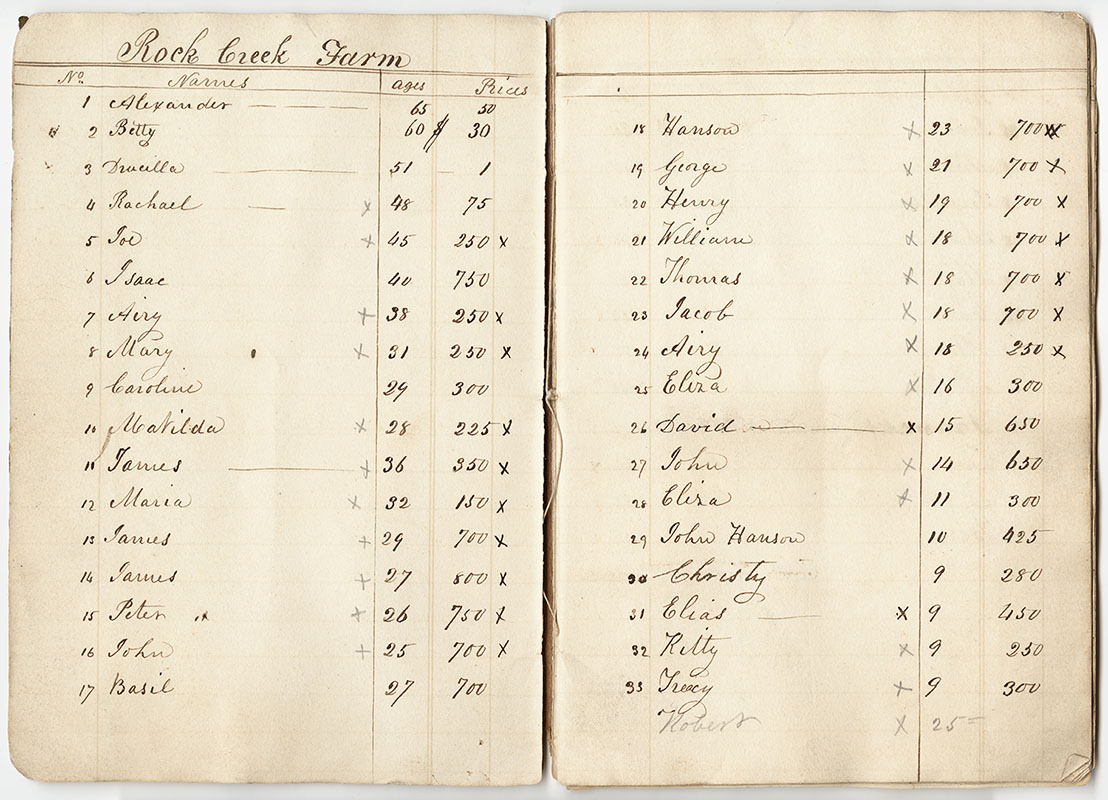 Rock Creek Farm
No. Names ages Prices
1 Alexander 65 50
2 Betty 60 $ 30
3 Drucilla 51 1
4 Rachael x 48 75
5 Joe x 45 250 x
6 Isaac 40 750
7 Airy x 38 250 x
8 Mary x 31 250 x
9 Caroline 29 300
10 Matilda x 28 225 x
11 James x 36 350 x
12 Maria x 32 150 x
13 James x 29 700 x
14 James x 27 800 x
15 Peter x 26 750 x
16 John x 25 700 x
17 Basil 27 700
18 Hanson x 23 700 x
19 George x 21 700 x
20 Henry x 19 700 x
21 William x 18 700 x
22 Thomas x 18 700 x
23 Jacob x 18 700 x
24 Airy x 18 250 x
25 Eliza x 16 300
26 David x 15 650
27 John x 14 650
28 Eliza x 11 300
29 John Hanson 10 425
30 Christy 9 280
31 Elias x 9 450
32 Kitty x 9 250
33 Treay x 9 300
Robert x 25=